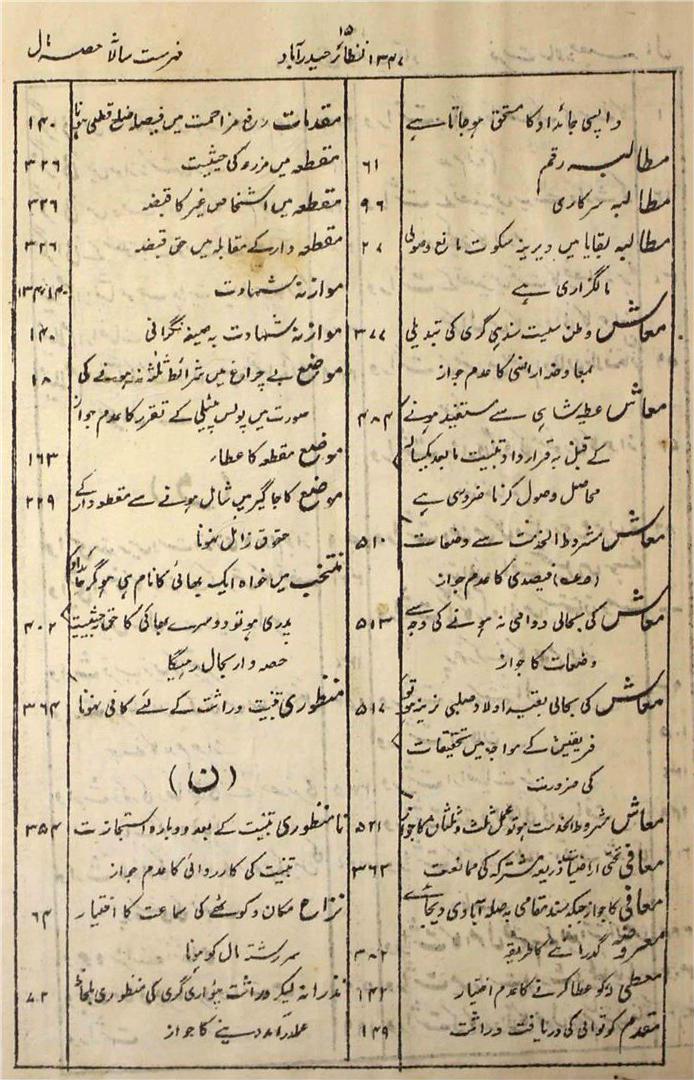 ۱۵
فہرست سالانہ حصہ مال نظائر حیدرآباد ۱۳۴۷
واپسی جائداد کا مستحق ہوجاتا ہے
مطالبہ رقم ۶۱
مطالبہ سرکاری ۹۶
مطالبہ بقایا میں دیرینہ سکوت مانع وصولی ۲۷
مالگزاری ہے
معاش وطن سیت سندہی گری کی تبدیلی ۳۷۷
بمعاوضہ اراضی کا عدم جواز
معاش عطیہ شاہی سے مستفید ہونے ۴۸۴
کے قبل بہ قرارداد تبنیت مابعد یکسالہ
محاصل وصول کرنا ضروری ہے
معاش مشروط الخدمت سے وضعات ۵۱۰
فیصدی کا عدم جواز
معاش کی بحالی دوامی نہ ہونے کی وجہ سے ۵۱۳
وضعات کا جواز
معاش کی بحالی بقیہ اولاد صلبی نرینہ متوفی ۵۱۷
فریقین کے مواجہ میں تحقیقات
کی ضرورت
معاش مشروط الخدمت ہو تو عمل ثلث و ثلثان کا جواز ۵۲۱
معافی تختی اراضیات ذریعہ مشترکہ کی ممانعت ۳۶۲
معافی کا جواز جبکہ سند مقامی بہ صلہ آبادی دیجائے
معروضہ گذراننے کا طریقہ ۳۸۲
معطی لہ کو عطا کرنے کا عدم اختیار ۱۴۲
مقدم کوتوالی کی دریافت وراثت ۱۴۹
مقدمات رفع مزاحمت میں فیصلہ ضلع قطعی ہونا ۱۴۰
مقطعہ میں مزرعہ کی حیثیت ۳۲۶
مقطعہ میں اشخاص غیر کا قبضہ ۳۲۶
مقطعہ دار کے مقابلہ میں حق قبضہ ۳۲۶
موازنہ شہادت
موازنہ شہادت بہ صیغہ نگرانی ۱۴۰
موضع بے چراغ میں شرائط ثلثہ نہ ہونے کی ۱۸
صورت میں پولس پٹیلی کے تقرر کا عدم جواز
موضع مقطعہ کا عطاء ۱۶۳
موضع کا جاگیر میں شامل ہونے سے مقطعہ دار کے ۲۲۹
حقوق زائل نہونا
منتخب میں خواہ ایک بھائی کا نام ہی ہو مگر جائداد
پدری ہو تو دوسرے بھائی کا حق حیثیت ۴۰۲
حصہ دار بحال رہیگا
منظوری تبنیت وراثت کے لئے کافی نہونا ۳۶۴
(ن)
نامنظوری تبنیت کے بعد دوبارہ استجازت ۳۵۴
تبنیت کی کارروائی کا عدم جواز
نزاع مکان و کوٹھے کی سماعت کا اختیار ۶۴
سررشتہ مال کو ہونا
نذرانہ لیکر وراثت پٹواری گری کی منظوری بلحاظ ۸۲
عملدرآمد دینے کا جواز